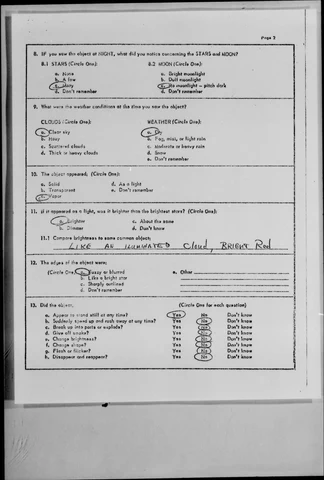 Page 2
8. IF you saw the object at NIGHT, what did you notice concerning the STARS and MOON?
8.1 STARS (Circle One): 8.2 MOON (Circle One):
a. None a. Bright moonlight
b. A few b. Dull moonlight
c. Many c. No moonlight - pitch dark
d. Don't remember d. Don't remember
9. What were the weather conditions at the time you saw the object?
CLOUDS (Circle One): WEATHER (Circle One):
a. Clear sky a. Dry
b. Hazy b. Fog, mist, or light rain
c. Scattered clouds c. Moderate or heavy rain
d. Thick or heavy clouds d. Snow
e. Don't remember
10. The object appeared: (Circle One):
a. Solid d. As a light
b. Transparent e. Don't remember
c. Vapor
11. If it appeared as a light, was it brighter than the brightest stars? (Circle One):
a. Brighter c. About the same
b. Dimmer d. Don't know
11.1 Compare brightness to some common object:
LIKE AN ILLUMINATED Cloud, BRIGHT Red
12. The edges of the object were:
(Circle One): a. Fuzzy or blurred e. Other
b. Like a bright star
c. Sharply outlined
d. Don't remember
13. Did the object: (Circle One for each question)
a. Appear to stand still at any time? Yes No Don't know
b. Suddenly speed up and rush away at any time? Yes No Don't know
c. Break up into parts or explode? Yes No Don't know
d. Give off smoke? Yes No Don't know
e. Change brightness? Yes No Don't know
f. Change shape? Yes No Don't know
g. Flash or flicker? Yes No Don't know
h. Disappear and reappear? Yes No Don't know